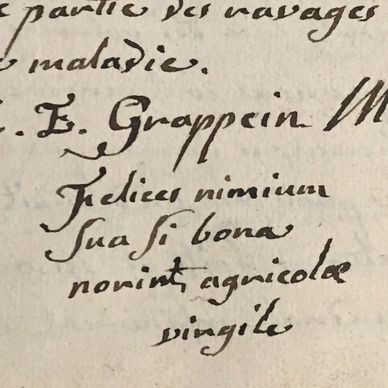 partie des ravages
maladie.
E. Grappein
Felices nimium
sua si bona
norint agricolæ
virgile